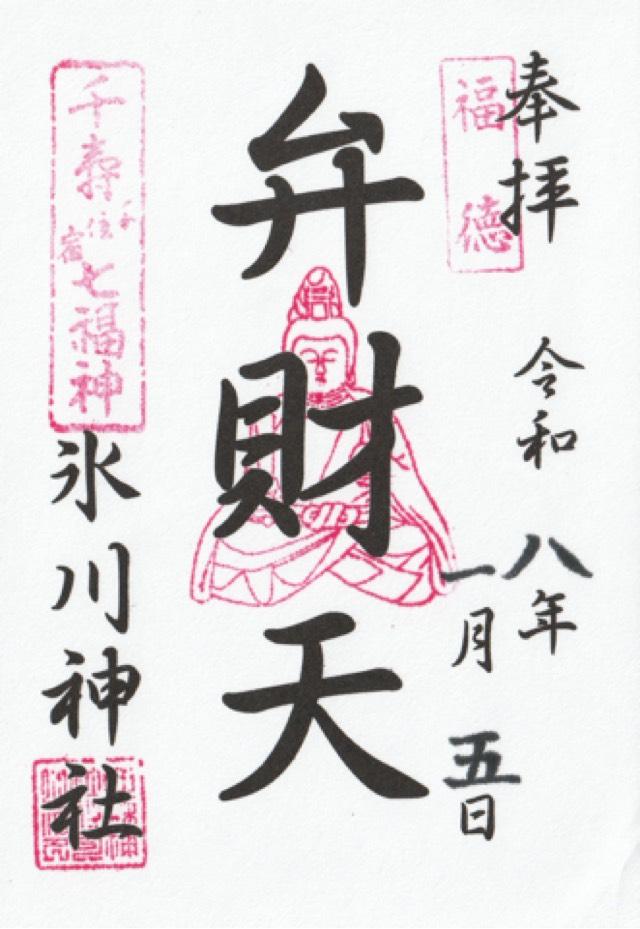 奉拝
福徳
令和八年
一月五日
弁財天
千寿七福神
千住宿
氷川神社